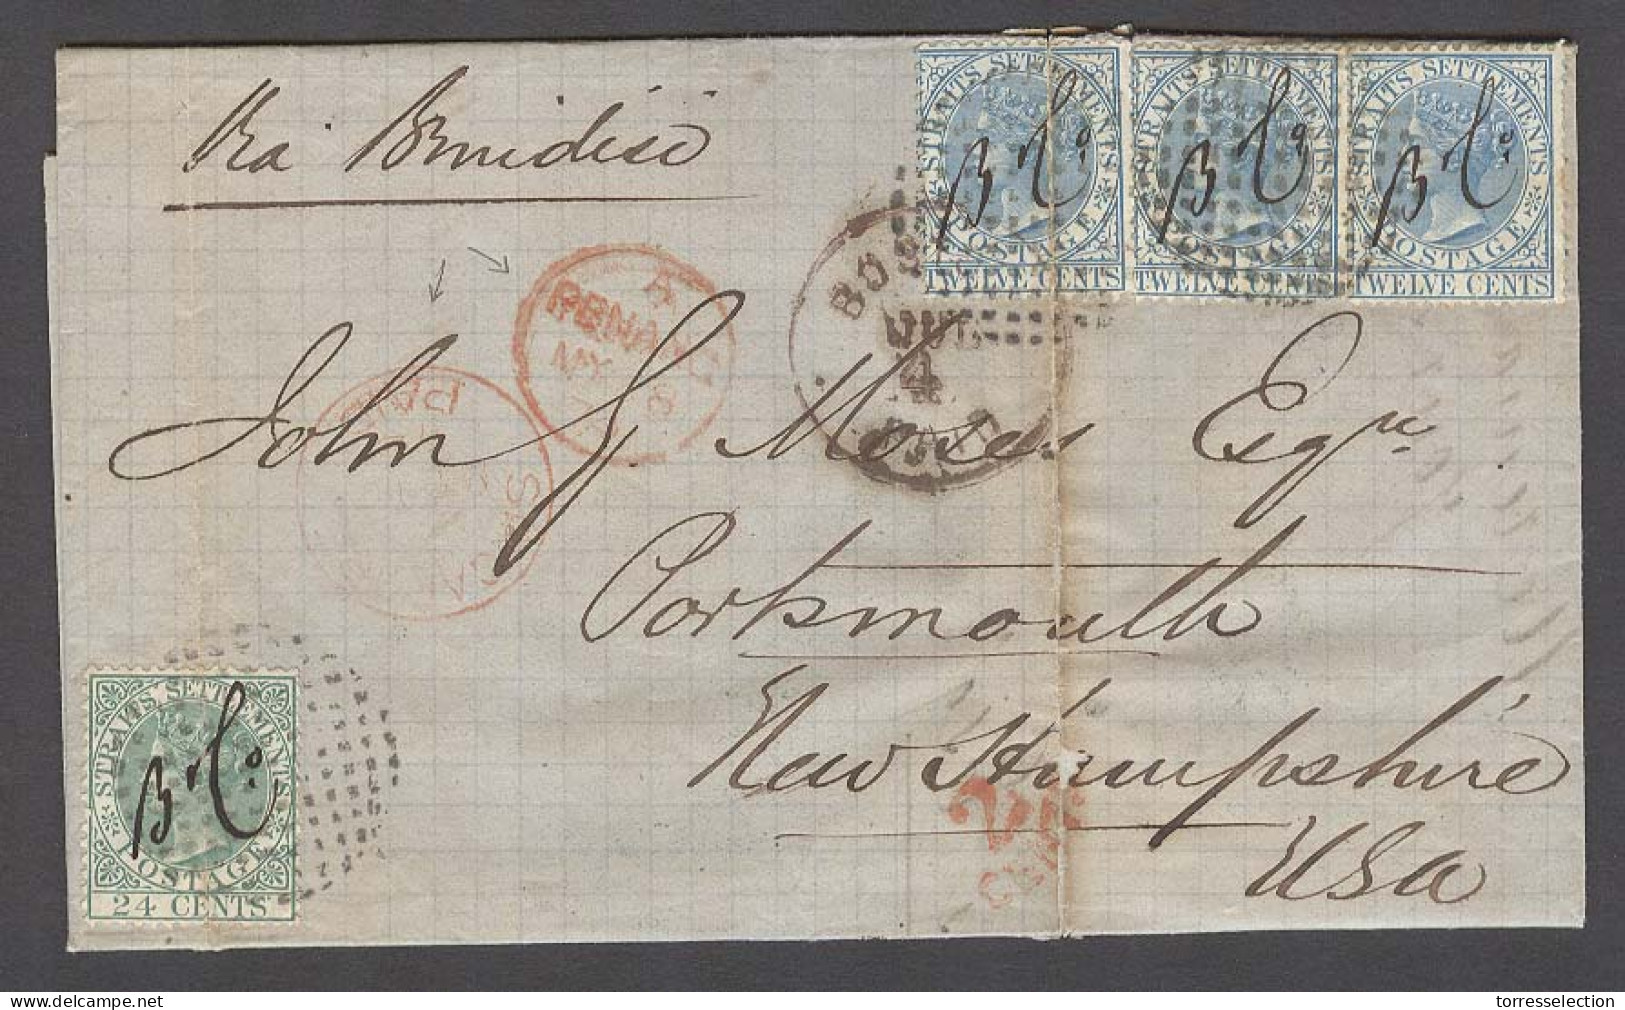 Via Brindisi
STRAITS SETTLEMENTS
POSTAGE
TWELVE CENTS
STRAITS SETTLEMENTS
POSTAGE
TWELVE CENTS
STRAITS SETTLEMENTS
POSTAGE
TWELVE CENTS
PENANG
MY 8
JUL
4
PAID
John G. Moses Esqre
Portsmouth
New Hampshire
USA
CENTS
STRAITS SETTLEMENTS
POSTAGE
24 CENTS
torresselection